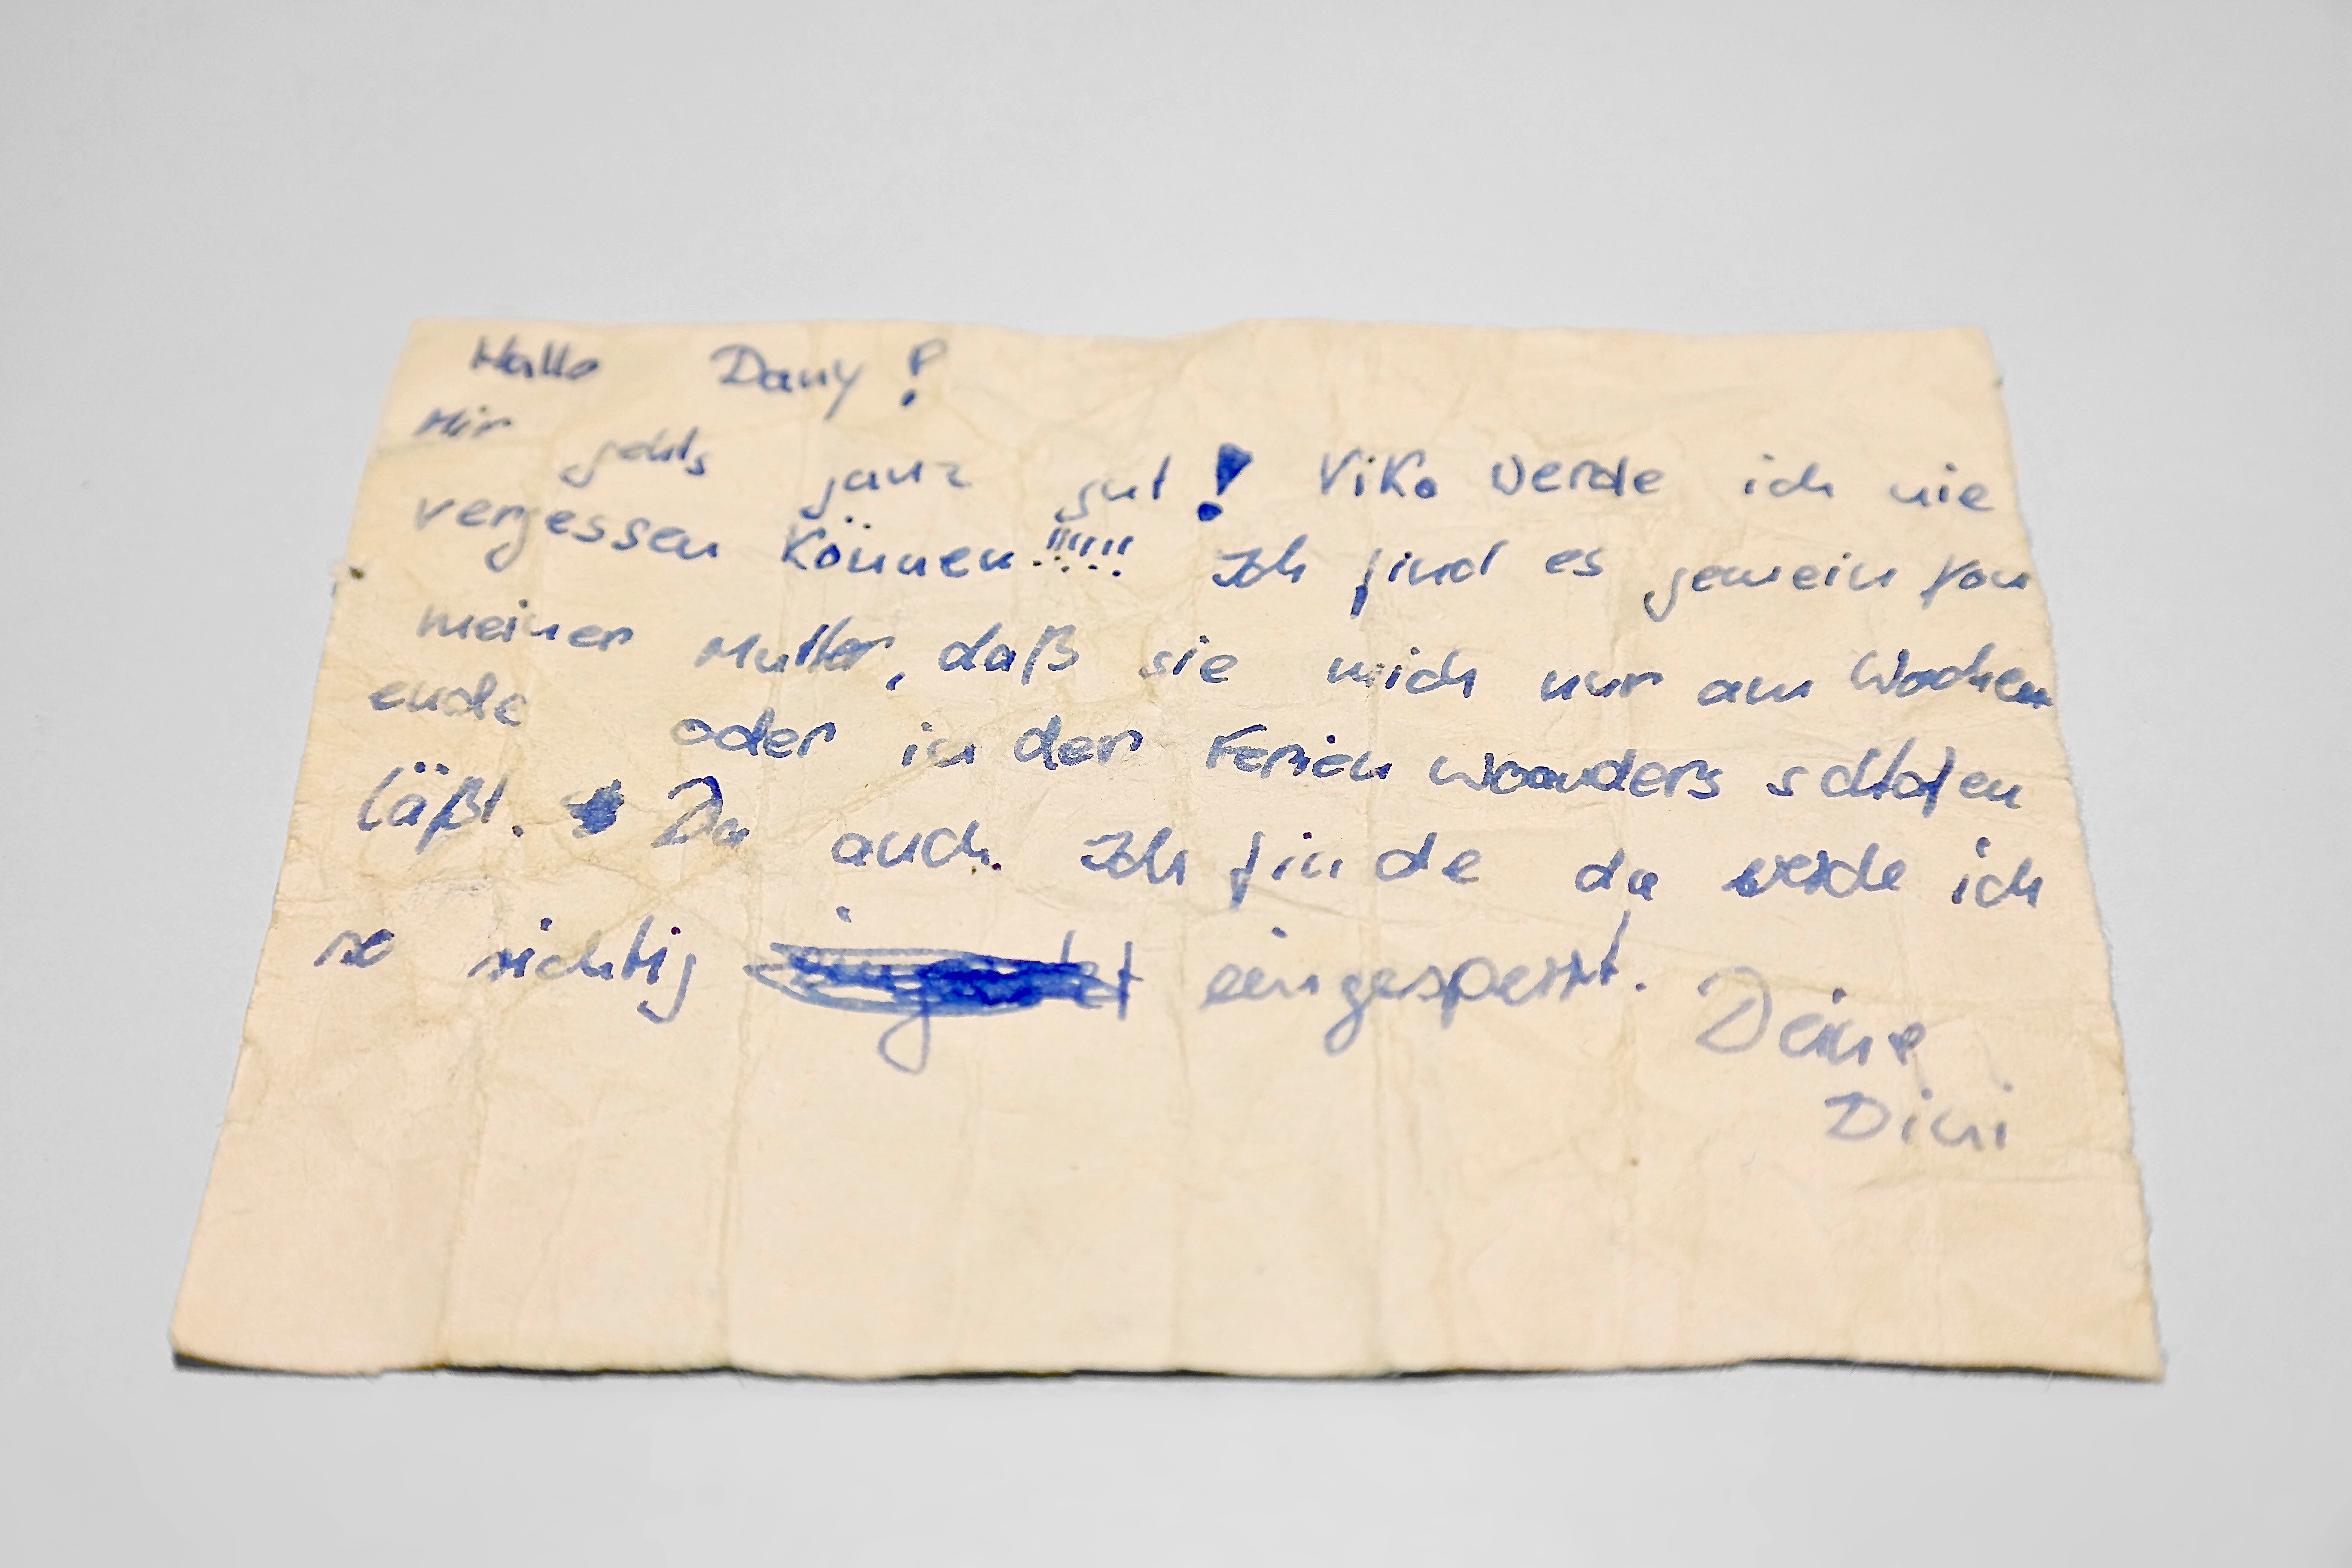 Hallo Dany!
Mir gehts ganz gut! Viko werde ich nie
vergessen können!!!!!! Ich find es gemein von
meiner Mutter, daß sie mich nur am Wochen
ende oder in der Ferien woanders schlafen
läßt. Du auch. Ich finde da werde ich
so richtig eingesperrt. Deine
Dini